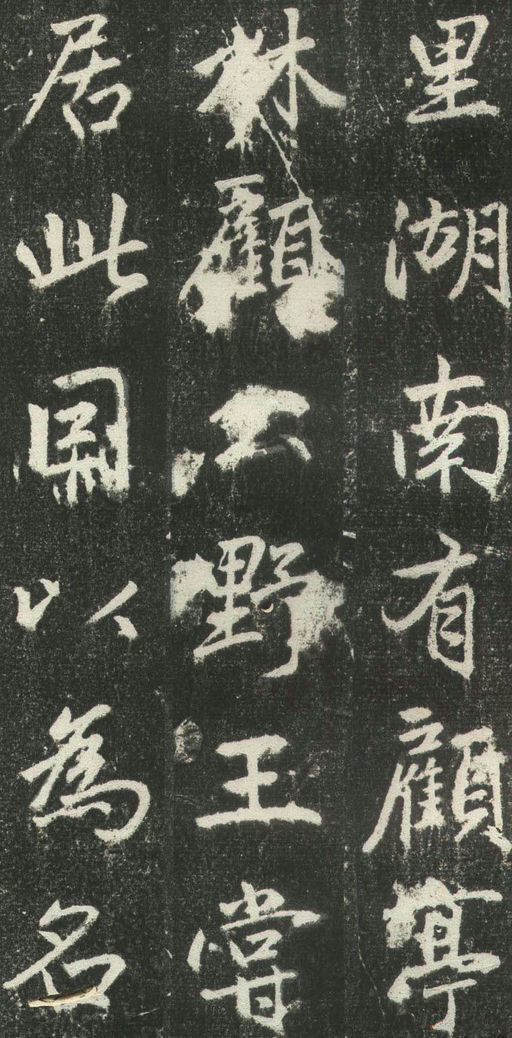 里湖南有顧亭
林顧公野王嘗
居此因以為名